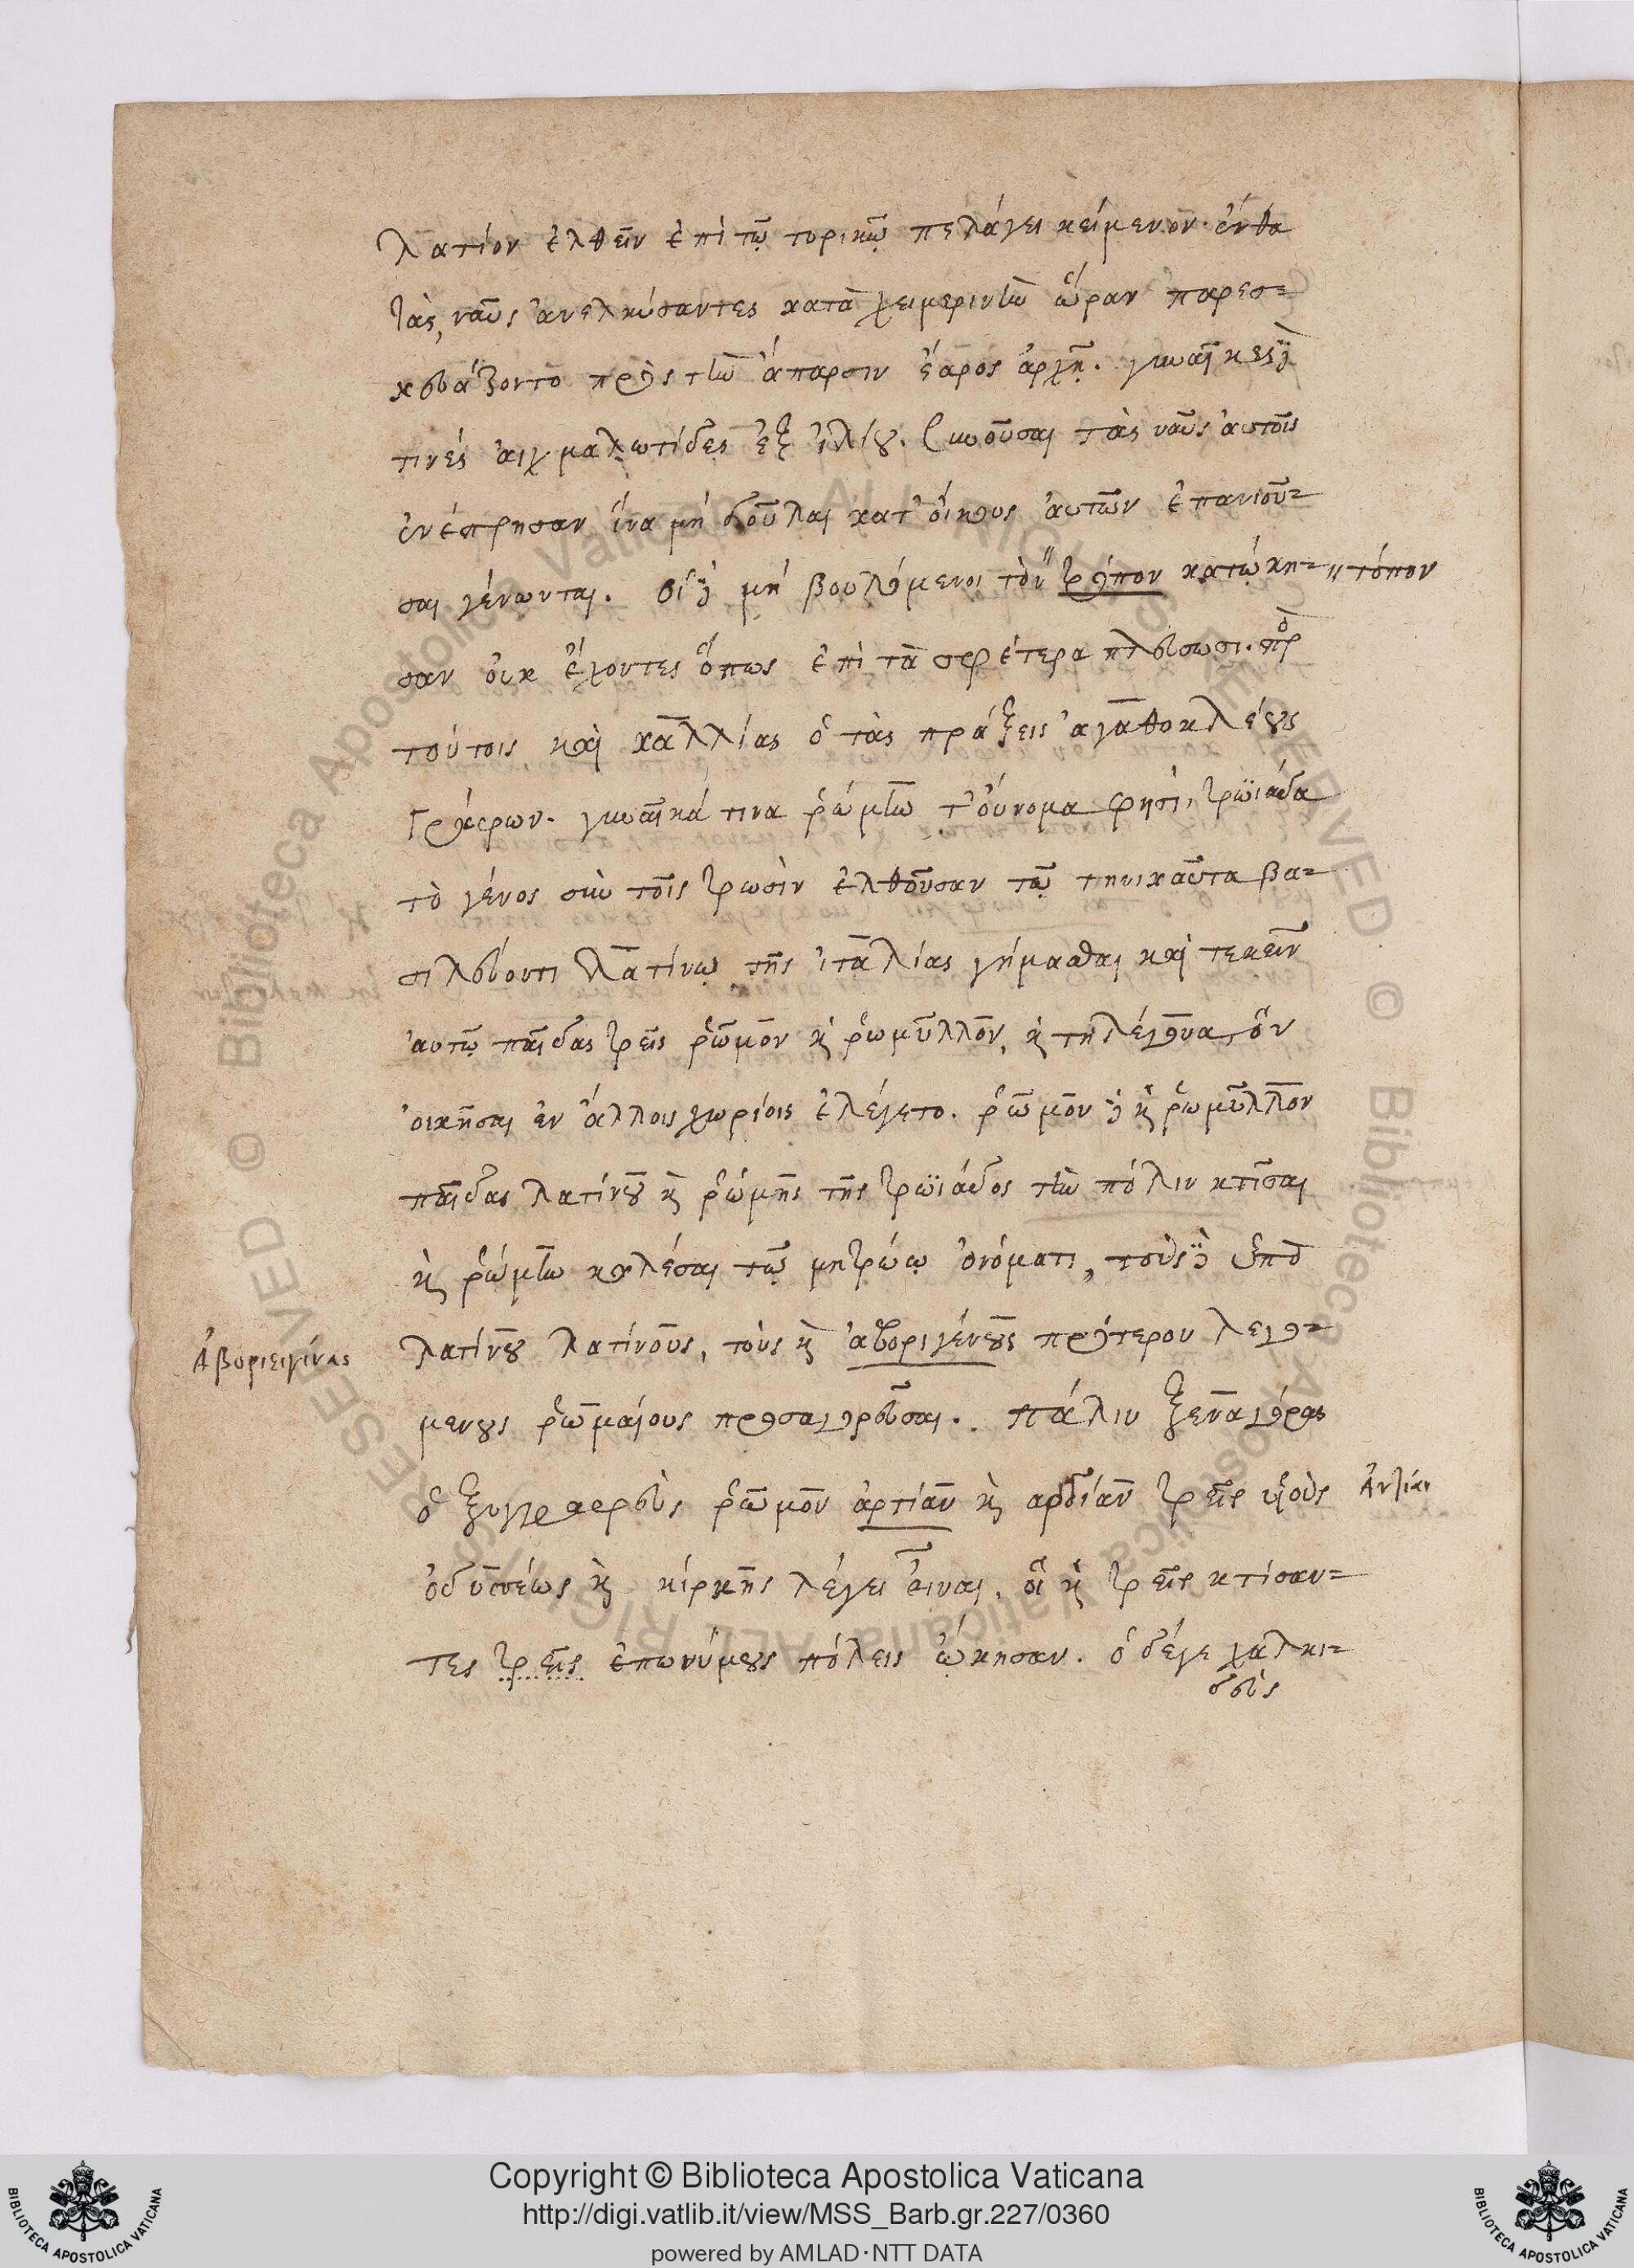 Λατίον ἐλθεῖν ἐπὶ τῷ τορικῷ πελάγει κείμενον· ἔνθα
τὰς ναῦς ἀνελκύσαντες κατὰ χειμερινὴν ὥραν παρεσ=
κευάζοντο πρὸς τὴν ἄπαρσιν ἔαρος ἀρχῇ. γυναῖκες δὲ
τινὲς αἰχμαλωτίδες ἐξ ἰλίου. κινοῦσαι τὰς ναῦς αὐτοῖς
ἐνέπρησαν ἵνα μὴ δοῦλαι κατ' οἴκους αὐτῶν ἐπανιοῦ=
σαι γένωνται. οἱ δὲ μὴ βουλόμενοι τὸν " τρόπον κατῴκη= " τόπον
σαν οὐκ ἔχοντες ὅπως ἐπὶ τὰ σφέτερα πλεύσωσι. πρὸ
τούτοις καὶ καλλίας ὁ τὰς πράξεις ἀγαθοκλέους
γράφων. γυναῖκά τινα ῥώμην τ' οὔνομα φησὶ, τρωϊάδα
τὸ γένος σὺν τοῖς τρωσὶν ἐλθοῦσαν τῷ τηνικαῦτα βα=
σιλεύοντι λατίνῳ τῆς ἰταλίας γήμασθαι καὶ τεκεῖν
αὐτῷ παῖδας τρεῖς ῥῶμον κὶ ῥωμύλλον, κὶ τηλέγονα, ὃν
οἰκῆσαι ἐν ἄλλοις χωρίοις ἐλέγετο. ῥῶμον δὲ κὶ ῥωμύλλον
παῖδας λατίνου κὶ ῥώμης τῆς τρωϊάδος τὴν πόλιν κτῖσαι
κὶ ῥώμην καλέσαι τῷ μητρώῳ ὀνόματι, τοὺς δὲ ὑπὸ
Ἀβοριειγίνας λατίνου λατίνους, τοὺς κὶ ἀβοριγένους πρότερον λεγο=
μενους ῥωμαίους προσαγορεῦσαι. πάλιν ξεναγόρας
ὁ ξυγγραφεὺς ῥῶμον ἀρτίαν κὶ αρδίαν τρεῖς υἱοὺς Ἀντίαν
ὀδυσσέως κὶ κίρκης λέγει εἶναι, οἳ κὶ τρεῖς κτίσαν=
τες τρεῖς ἐπωνύμους πόλεις ᾤκησαν. ὁ δέγε χαλκι=
δεὺς
Copyright © Biblioteca Apostolica Vaticana
http://digi.vatlib.it/view/MSS_Barb.gr.227/0360
powered by AMLAD·NTT DATA
BIBLIOTECA APOSTOLICA VATICANA
BIBLIOTECA APOSTOLICA VATICANA